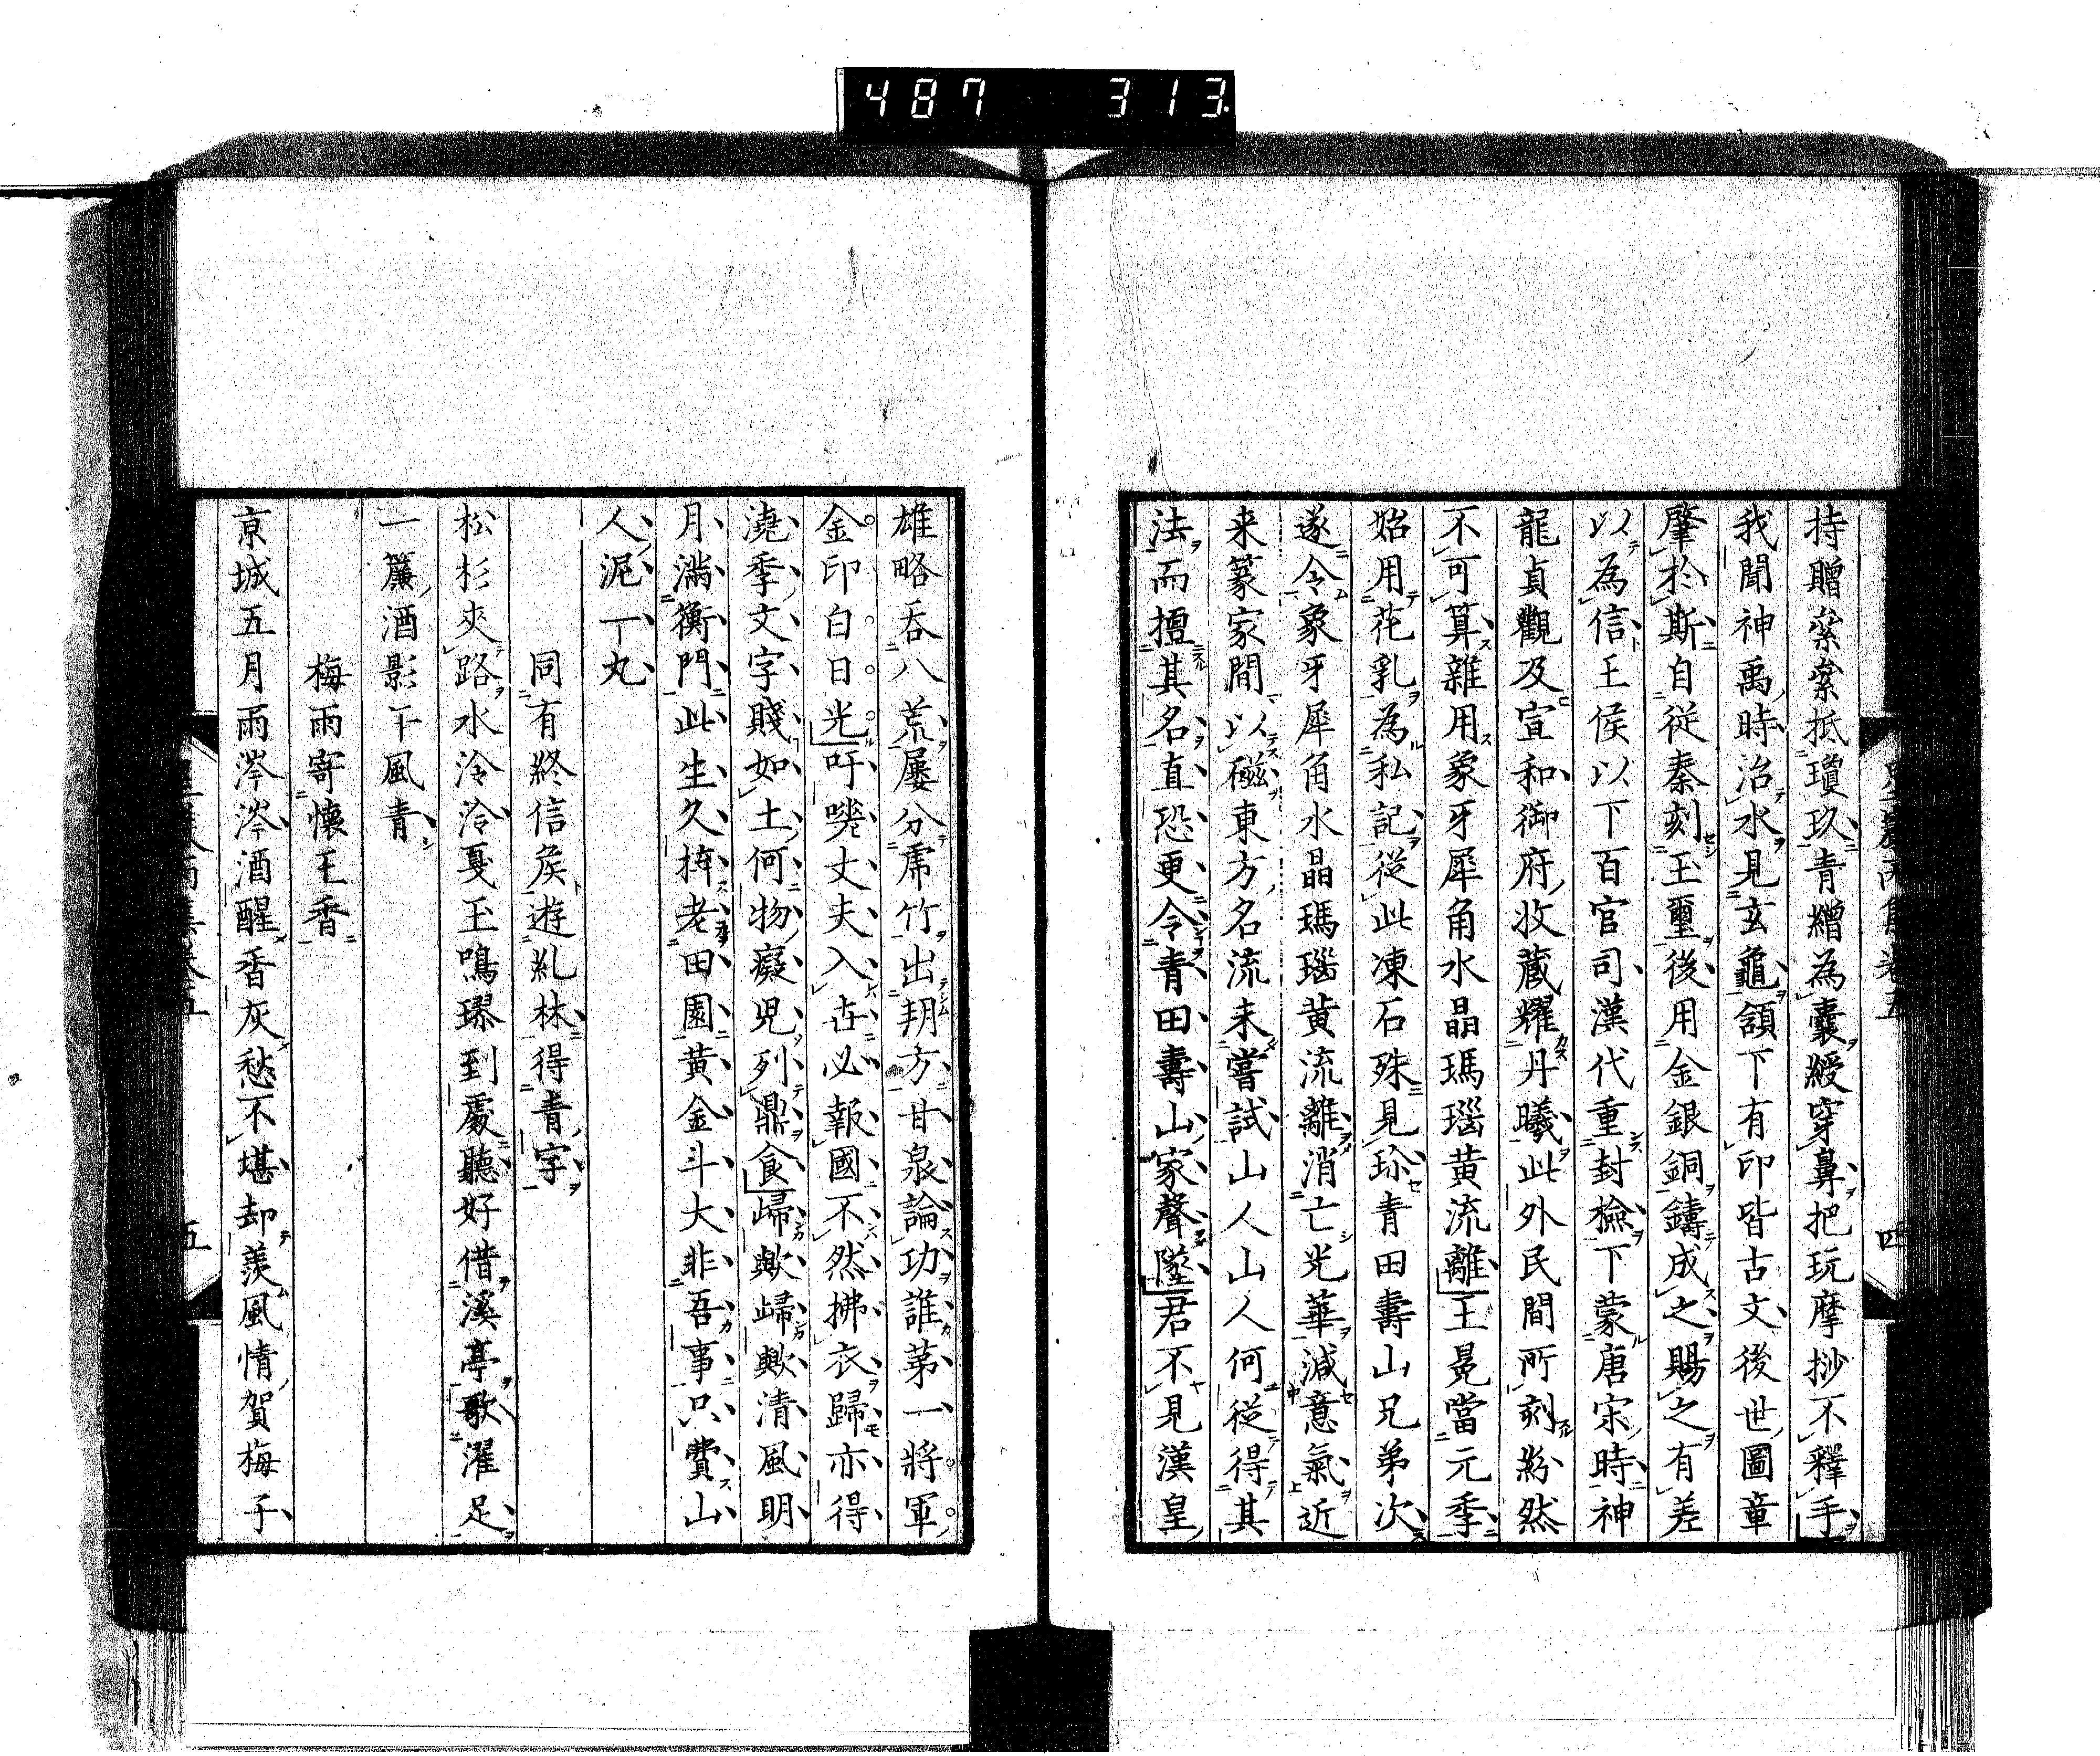 487 313
持贈縈縈抵瓊玖青繒為囊綬穿鼻把玩摩挱不釋手
我聞神禹時治水見玄龜頷下有印皆古文後世圖章
肇於斯自從秦刻玉璽後用金銀銅鑄成之賜之有差
以為信王侯以下百官司漢代重封檢下蒙唐宋時神
龍貞觀及宣和御府收蔵耀丹曦此外民間所刻紛然
不可算雜用象牙犀角水晶瑪瑙黄流離王冕當元季
始用花乳為私記從此凍石殊見珍青田壽山兄弟次
遂令象牙犀角水晶瑪瑙黄流離消亡光華減意氣近
来篆家間以磁東方名流未嘗試山人山人何從得其
法而擅其名直恐更令青田壽山家聲墜君不見漢皇
四
雄略吞八荒屢分虎竹出朔方甘泉論功誰第一將軍
金印白日光吁嗟丈夫入世必報國不然拂衣歸亦得
澆季文字賤如土何物癡兒列鼎食歸歟歸歟清風明
月滿衡門此生久擬老田園黄金斗大非吾事只費山
人泥一丸
同有終信侯遊糺林得青字
松杉夾路水泠泠戛玉鳴璆到處聽好借溪亭歌濯足
一簾酒影午風青
梅雨寄懷王香
京城五月雨涔涔酒醒香灰愁不堪却羨風情賀梅子
五